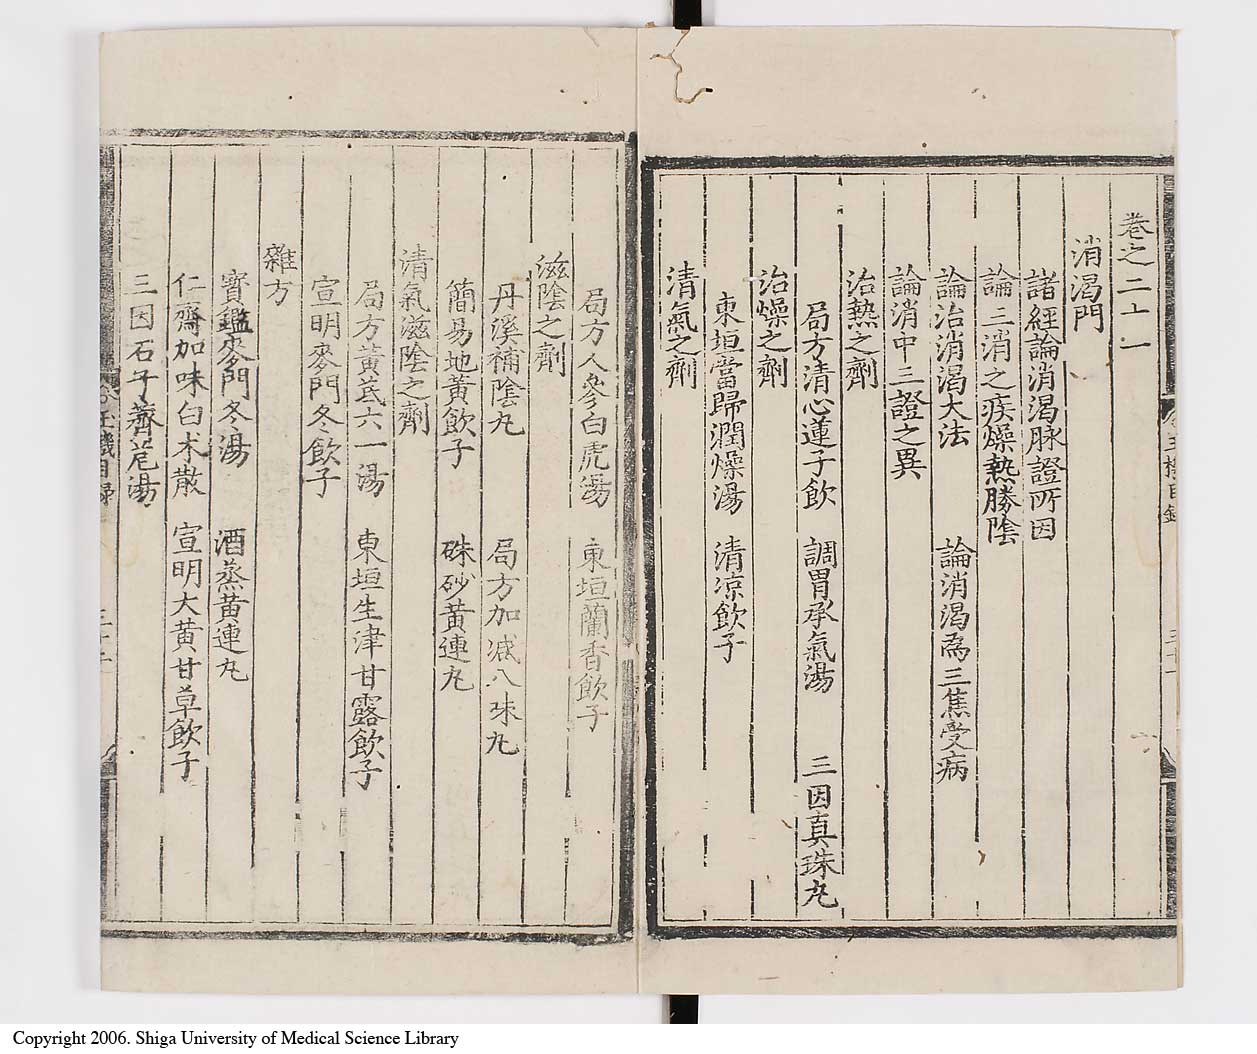 卷之二十一
消渴門
諸經論消渴脉證所因
論三消之疾燥熱勝陰
論治消渴大法　論消渴為三焦受病
論消中三證之異
治熱之劑
局方清心蓮子飲　調胃承氣湯　三因真珠丸
治燥之劑
東垣當歸潤燥湯　清凉飲子
清氣之劑
局方人參白虎湯　東垣蘭香飲子
滋陰之劑
丹溪補陰丸　局方加减八味丸
簡易地黃飲子　硃砂黃連丸
清氣滋陰之劑
局方黃芪六一湯　東垣生津甘露飲子
宣明麥門冬飲子
雜方
寳鑑麥門冬湯　酒蒸黃連丸
仁齋加味白术散　宣明大黃甘草飲子
三因石子薺苨湯
Copyright 2006. Shiga University of Medical Science Library